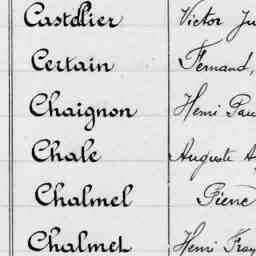 Castellier Victor
Certain Fernand,
Chaignon Henri
Chale Auguste
Chalmel Pierre
Chalmet Henri